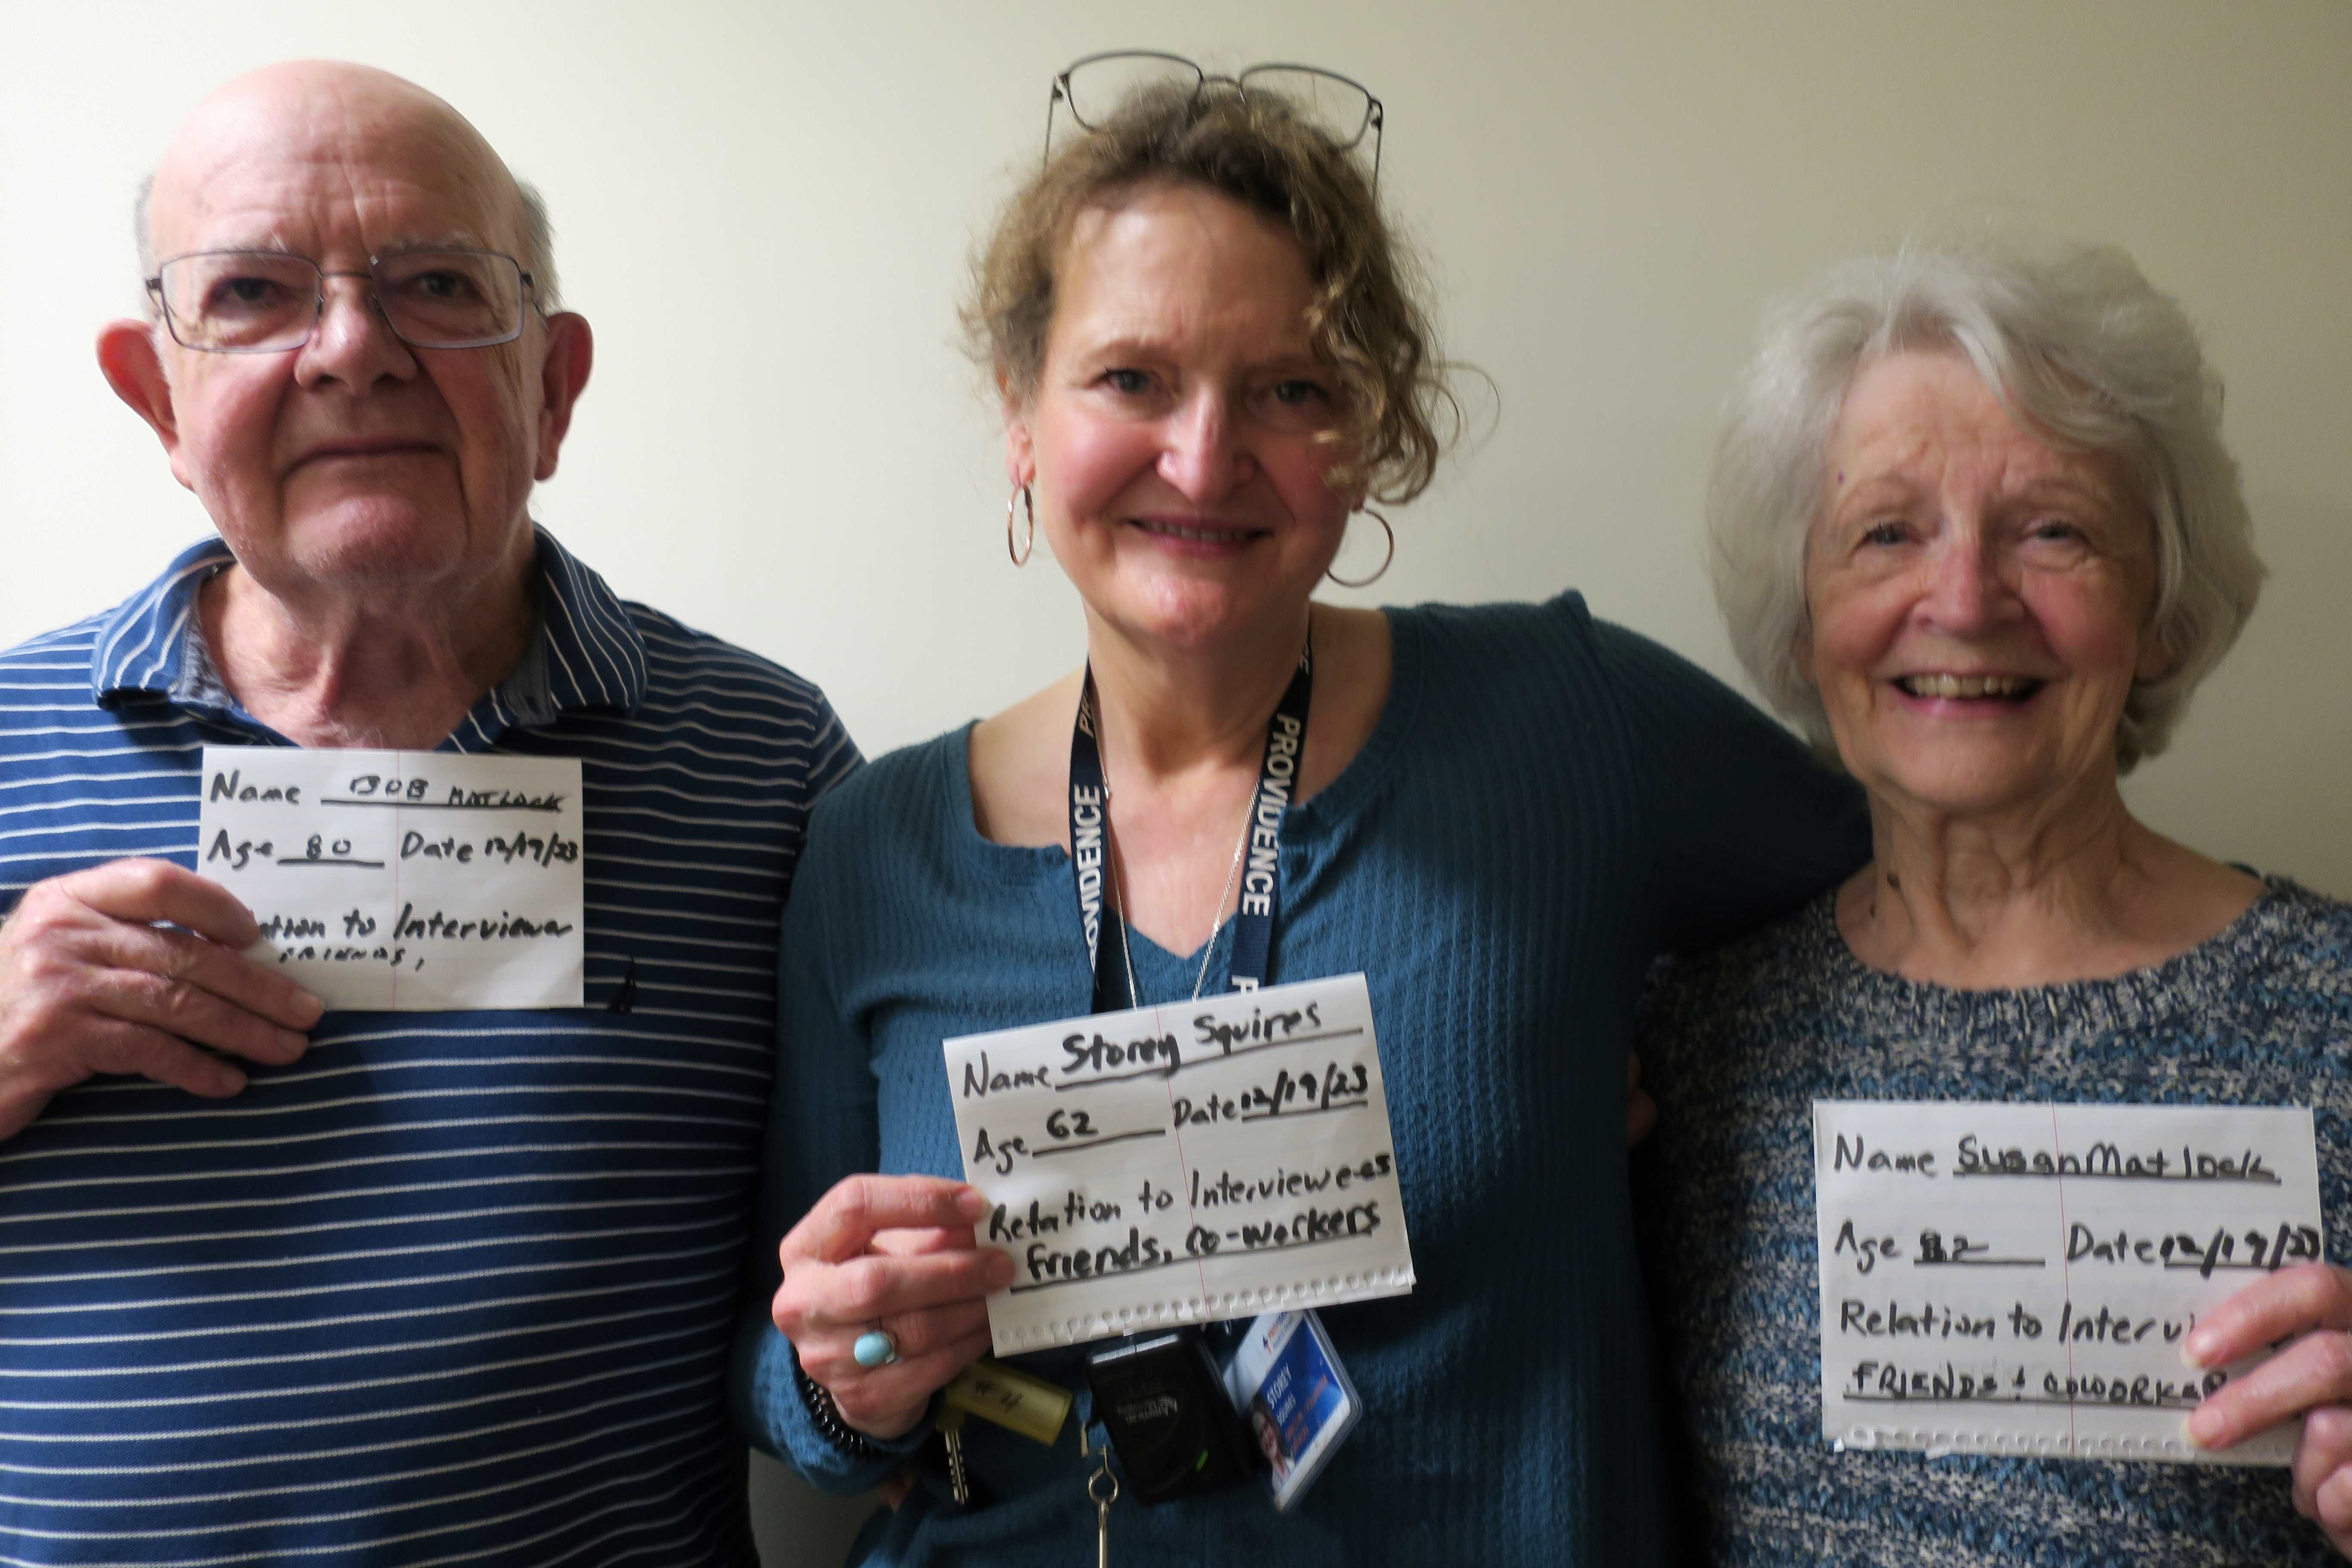 Name BOB MATLOCK
Age 80 Date 12/19/23
ation to Interviewer
FRIENDS,
PROVIDENCE
PROVIDENCE
Name Storey Squires
Age 62 Date 12/19/23
Relation to Interviewees
friends, co-workers
#4
STOREY
SQUIRES
Name Susan Matlock
Age 82 Date 12/19/23
Relation to Intervi
FRIENDS + COWORKER